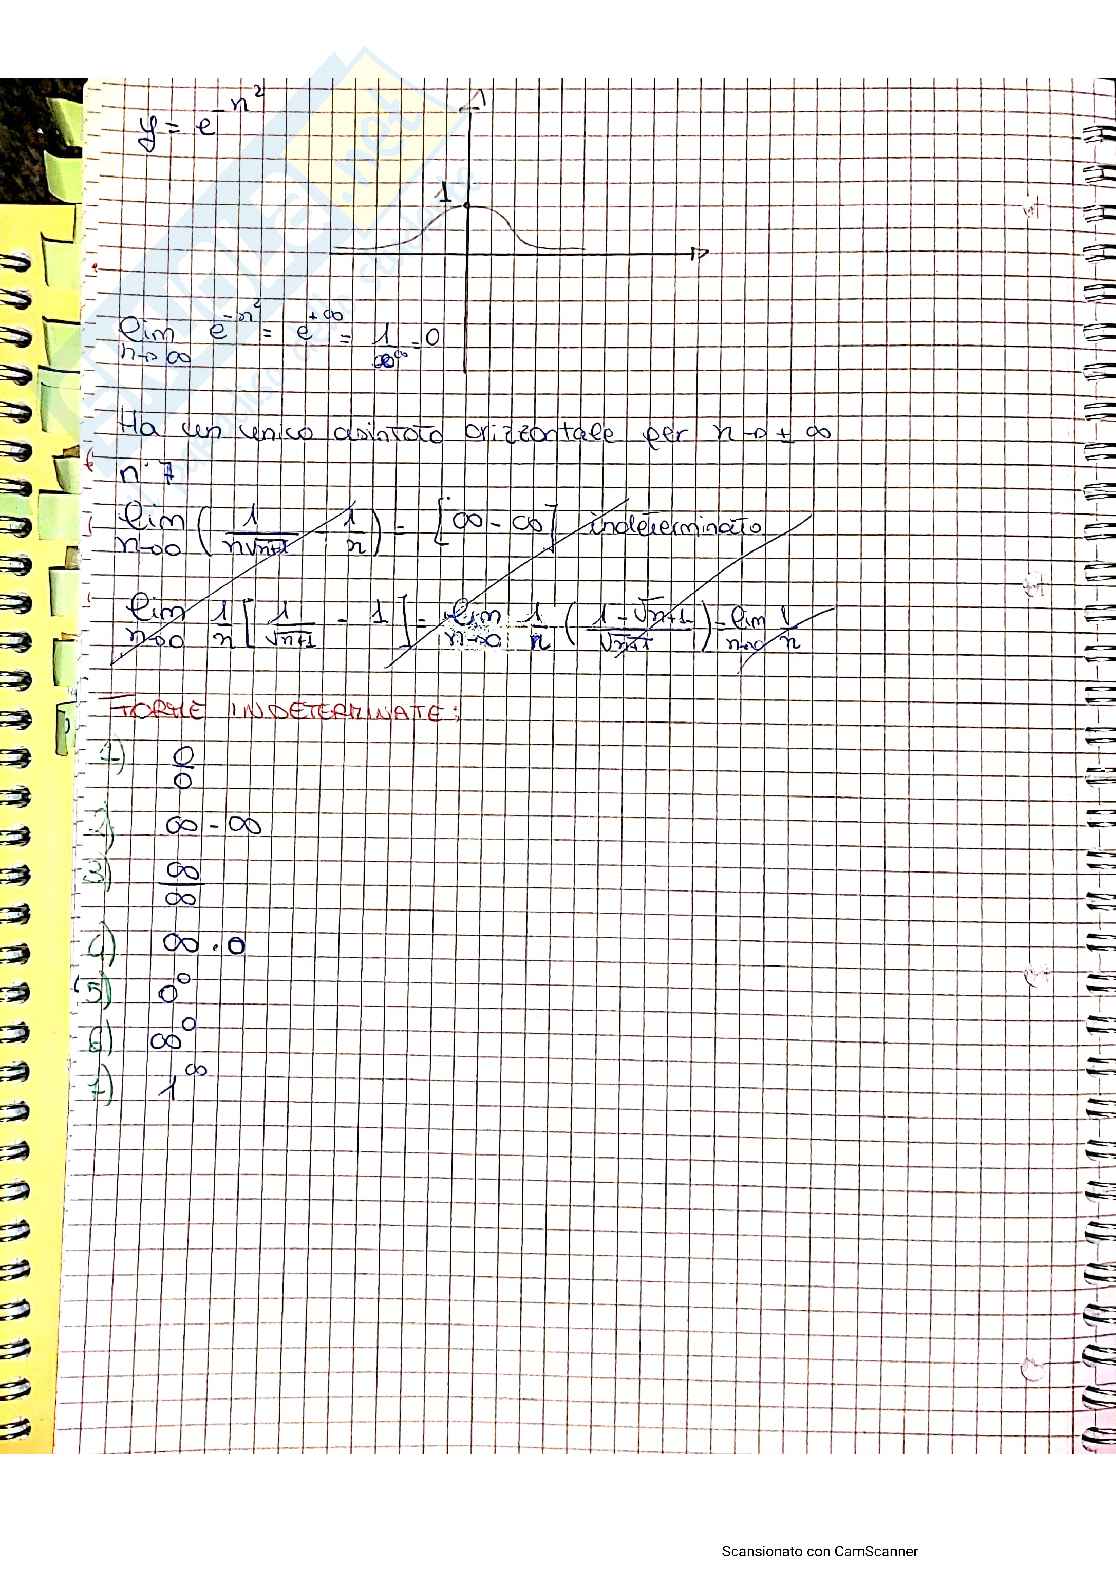 y = e^-x²
1
lim x→∞ e^-x² = e^+∞ = 1/∞^∞ = 0
Ha un unico asintoto orizzontale per x → ± ∞
n° 7
lim x→0 ( 1/x√x+1 - 1/x ) = [∞ - ∞] indeterminato
lim x→0 1/x [ 1/√x+1 - 1 ] = lim x→0 1/x ( 1-√x+1 / √x+1 ) = lim x→0 1/x
FORME INDETERMINATE:
1) 0/0
2) ∞ - ∞
3) ∞/∞
4) ∞ · 0
5) 0^0
6) ∞^0
7) 1^∞
Scansionato con CamScanner